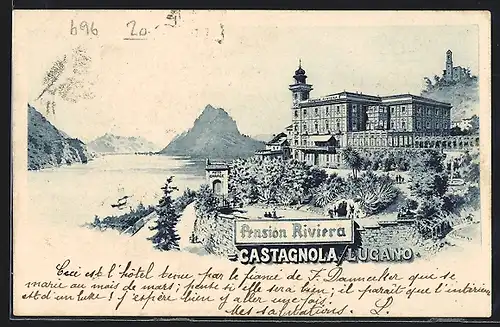 b96 20.-
Pension Riviera
CASTAGNOLA/LUGANO
Ceci est l'hôtel tenue par le fiancé de F. Dannecker que se
marie au mois de mars; pense si elle sera bien; il parait que l'intérieur
est d'un luxe! J'espère bien y aller une fois.
Mes salutations. L.